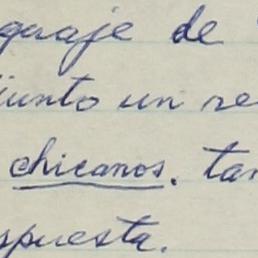 guaje de
junto un re
chicanos. tan
spuesta.